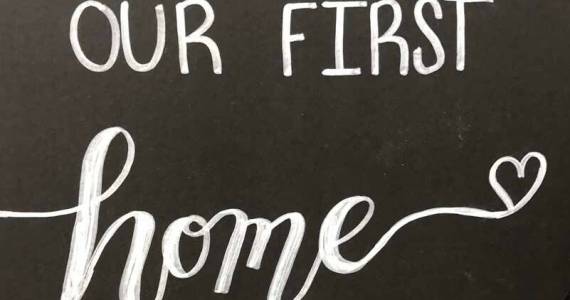 OUR FIRST
home